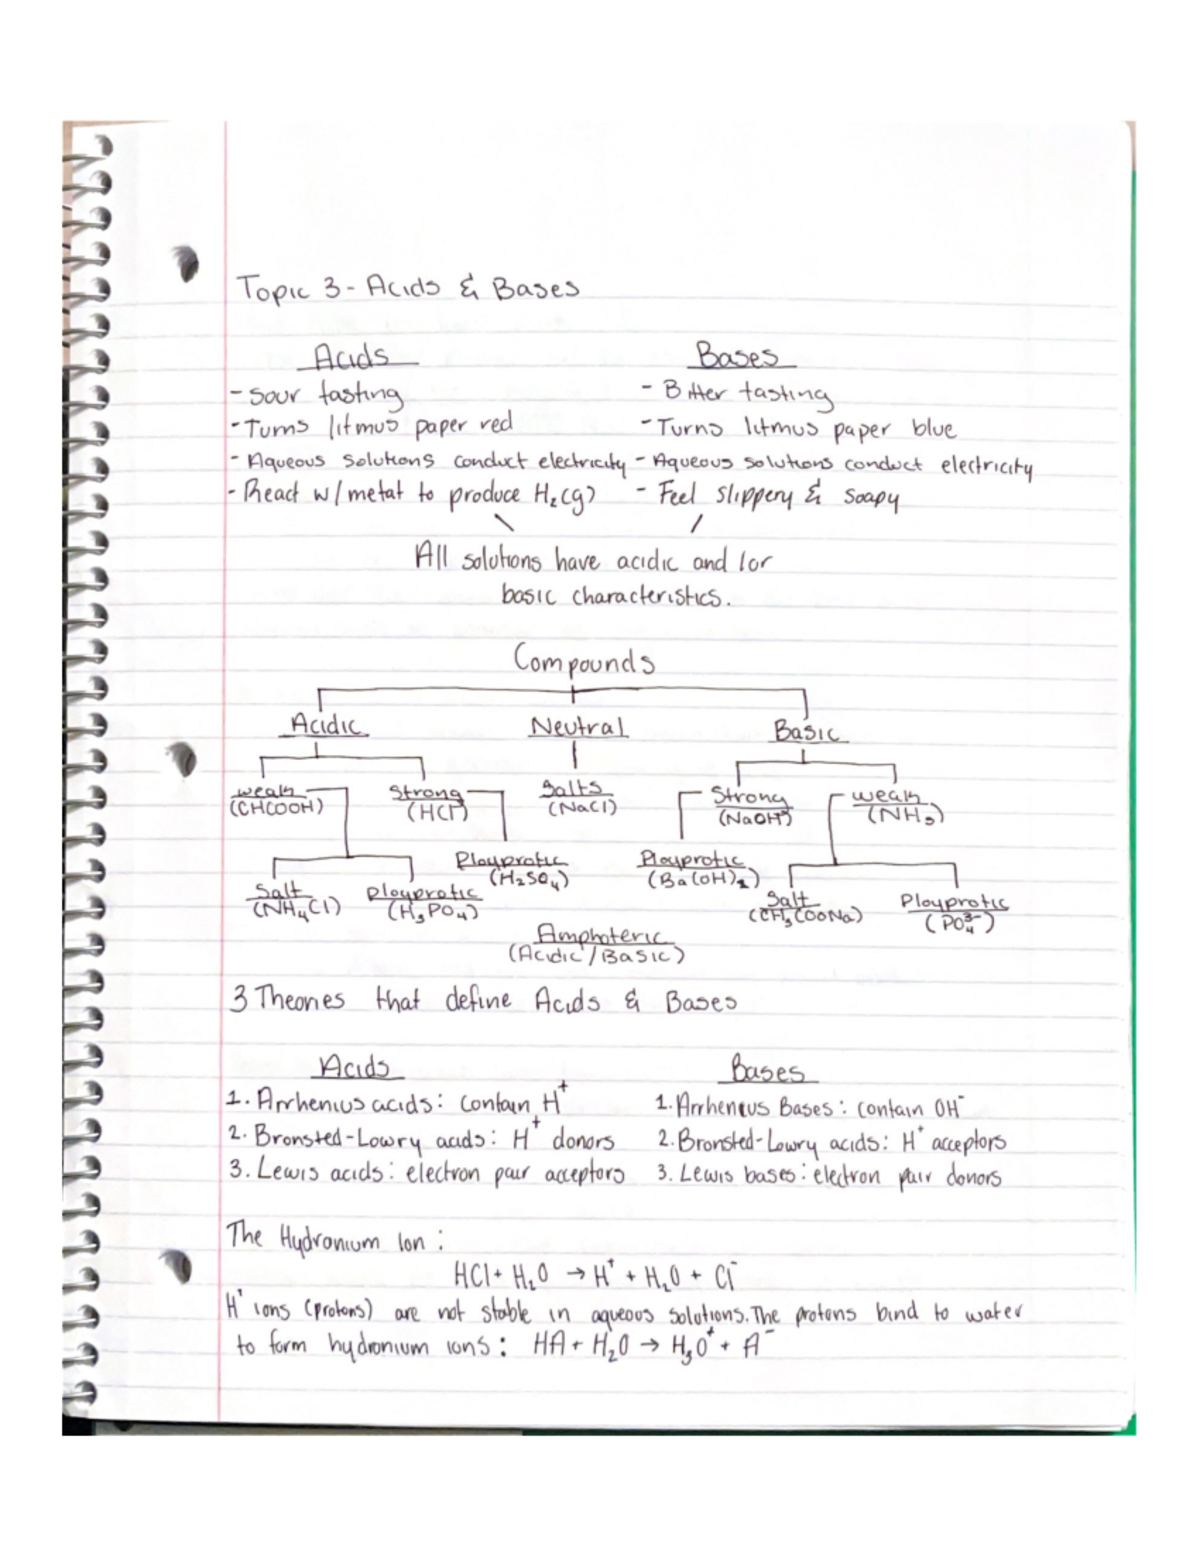 Topic 3 - Acids & Bases
Acids Bases
- Sour tasting - Bitter tasting
- Turns litmus paper red - Turns litmus paper blue
- Aqueous solutions conduct electricity - Aqueous solutions conduct electricity
- React w/ metal to produce H₂(g) - Feel slippery & soapy
All solutions have acidic and /or
basic characteristics.
Compounds
Acidic Neutral Basic
weak Strong Salts Strong weak
(CHCOOH) (HCl) (NaCl) (NaOH) (NH₃)
Ployprotic Ployprotic
(H₂SO₄) (Ba(OH)₂)
Salt Ployprotic Salt Ployprotic
(NH₄Cl) (H₃PO₄) (CH₃COONa) (PO₄³⁻)
Amphoteric
(Acidic/Basic)
3 Theories that define Acids & Bases
Acids Bases
1. Arrhenius acids: contain H⁺ 1. Arrheneus Bases: contain OH⁻
2. Bronsted-Lowry acids: H⁺ donors 2. Bronsted-Lowry acids: H⁺ acceptors
3. Lewis acids: electron pair acceptors 3. Lewis bases: electron pair donors
The Hydronium Ion:
HCl + H₂O → H⁺ + H₂O + Cl⁻
H⁺ ions (protons) are not stable in aqueous solutions. The protons bind to water
to form hydronium ions: HA + H₂O → H₃O⁺ + A⁻